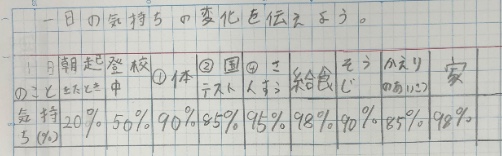 一日の気持ちの変化を伝えよう。
1日のこと 朝起きたとき 登校中 ①体 ②国テスト ④さんすう 給食 そうじ かえりのあいさつ 家
気持ち(%) 20% 50% 90% 85% 95% 98% 90% 85% 98%